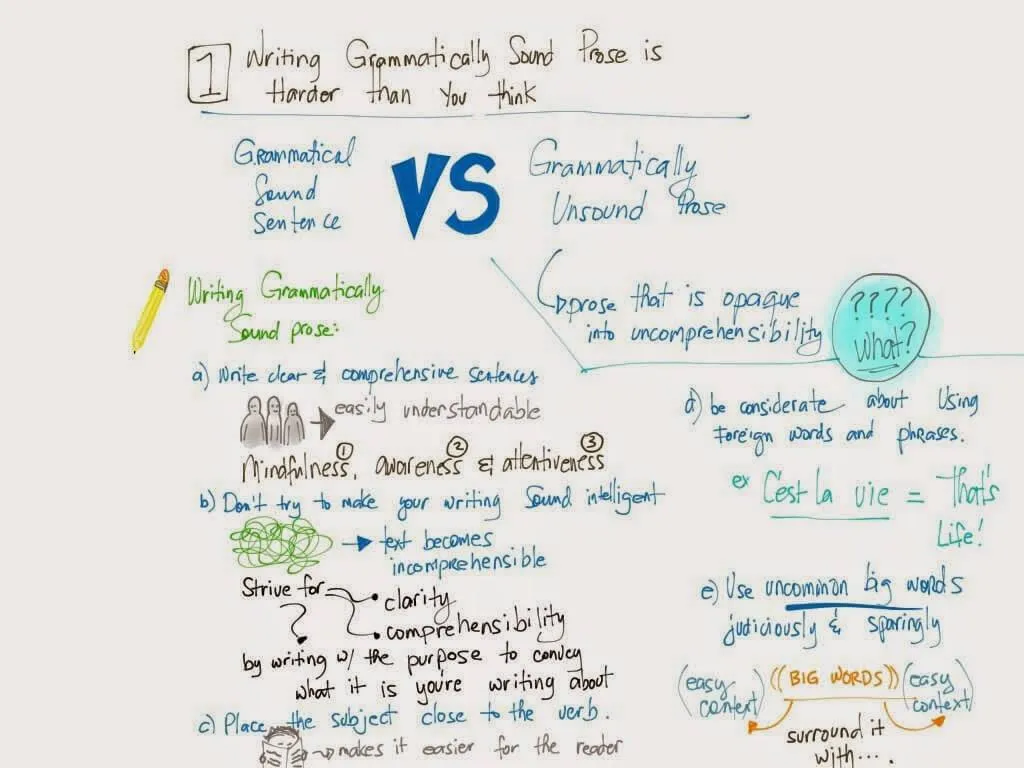 1 Writing Grammatically Sound Prose is
Harder than You think
Grammatical
Sound
Sentence
VS
Grammatically
Unsound Prose
prose that is opaque
into uncomprehensibility
????
what?
Writing Grammatically
Sound prose:
a) Write clear & comprehensive sentences
easily understandable
1 2 3
Mindfulness, awareness & attentiveness
b) Don't try to make your writing Sound intelligent
text becomes
incomprehensible
Strive for
clarity
comprehensibility
?
by writing w/ the purpose to convey
what it is you're writing about
c) Place the subject close to the verb.
makes it easier for the reader
d) be considerate about Using
Foreign words and phrases.
ex C'est La vie = That's
Life!
e) Use uncommon big words
judiciously & sparingly
(easy context) ((BIG WORDS)) (easy context)
surround it
with....